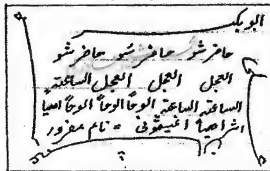 ابوبکر
حاضر شو حاضر شو حاضر شو
العجل العجل العجل الساعته
الساعته الساعته الوحًا الوحًا الوحًا اھیا
اشراھیاً اغیثونی = نام مفرور